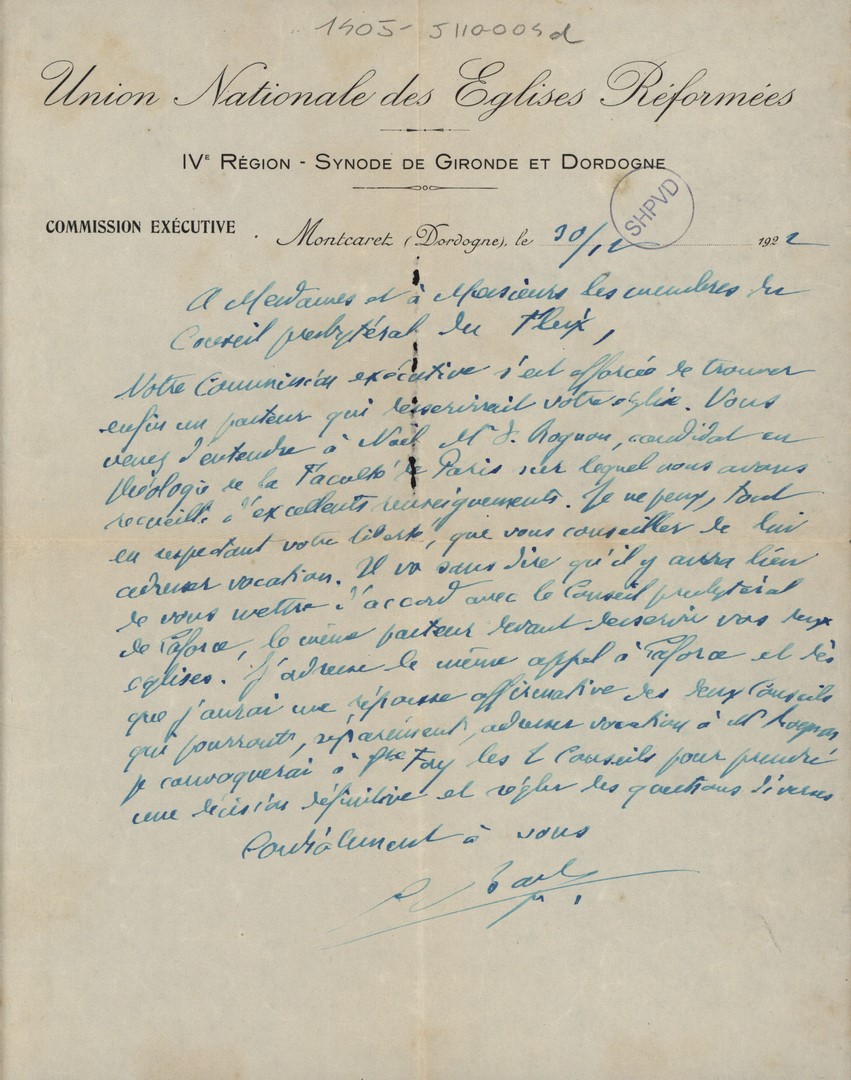 1405-5110004d
Union Nationale des Eglises Réformées
IVe Région - Synode de Gironde et Dordogne
SHPVD
COMMISSION EXÉCUTIVE
Montcaret (Dordogne), le 30/12 1922
A Mesdames et à Messieurs les membres du
Conseil presbytéral du Fleix,
Votre Commission exécutive s'est efforcée de trouver
enfin un pasteur qui desservirait votre église. Vous
venez d'entendre à Noël Mr J. Rognon, candidat en
théologie de la Faculté de Paris sur lequel nous avons
recueilli d'excellents renseignements. Je ne peux, tout
en respectant votre liberté, que vous conseiller de lui
adresser vocation. Il va sans dire qu'il y aura lieu
de vous mettre d'accord avec le Conseil presbytéral
de Laforce, le même pasteur devant desservir vos deux
églises. J'adresse le même appel à Laforce et dès
que j'aurai une réponse affirmative des deux Conseils
qui pourront, séparément, adresser vocation à Mr Rognon
je convoquerai à Ste Foy les 2 Conseils pour prendre
une décision définitive et régler les questions diverses
Cordialement à vous